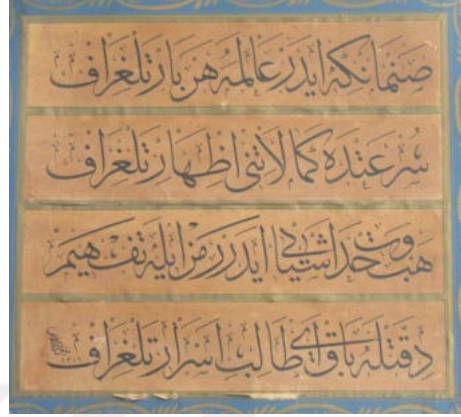 صنمانكه ايدر عالمه هر بار تلغراف
سرعتده كمالاتنى اظهار تلغراف
هب وحدت اشيايى ايدر رمز ايله تفهيم
دقتله باق اى طالب اسرار تلغراف